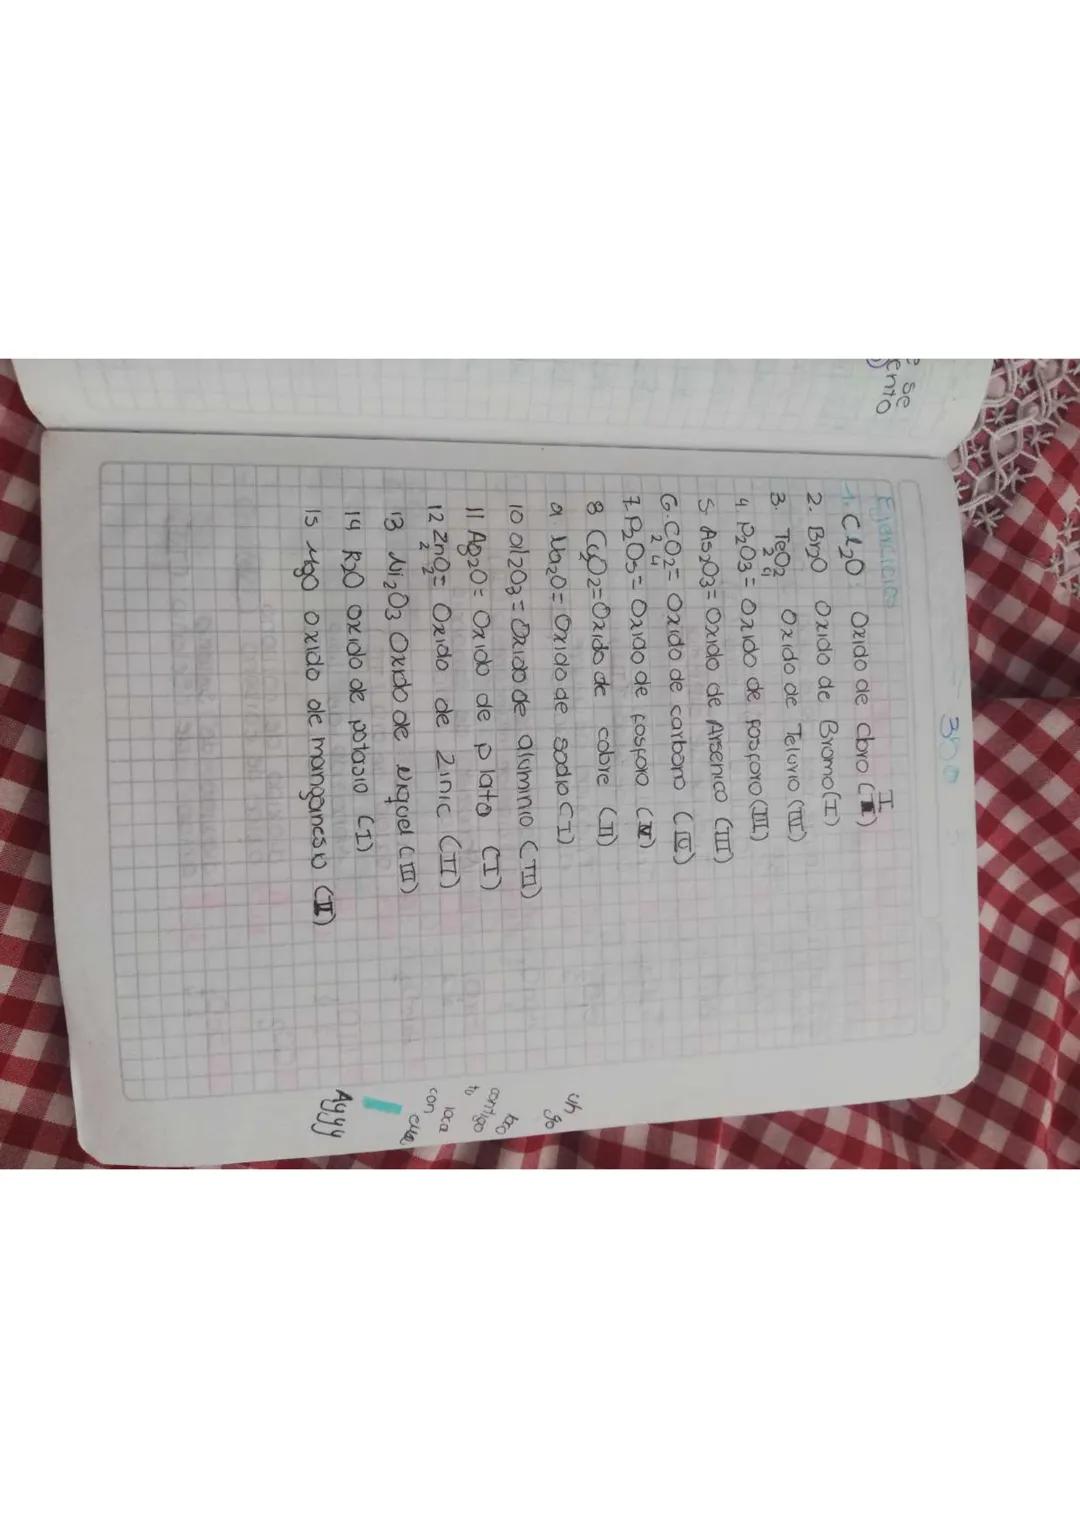 e se
ento
Ejercicios
1. Cl₂O: Oxido de cloro (I)
2. Br₂O Oxido de Bromo (I)
3. TeO₂ Oxido de Teluro (IV)
2 4
4 P₂O₃ = Oxido de fosforo (III)
5 As₂O₃ = Oxido de Arsenico (III)
6. CO₂ = Oxido de carbono (IV)
2 4
7. P₂O₅ = Oxido de fosforo (V)
8 Cu₂O₂ = Oxido de cobre (II)
9 Na₂O = Oxido de sodio (I)
10 al₂O₃ = Oxido de aluminio (III)
11 Ag₂O = Oxido de plata (I)
12 ZnO = Oxido de Zinic (II)
2 2
13 Ni₂O₃ Oxido de niquel (III)
14 K₂O Oxido de potasio (I)
15 MgO Oxido de manganesio (II)
contigo
tu
loca
con
Ayyy